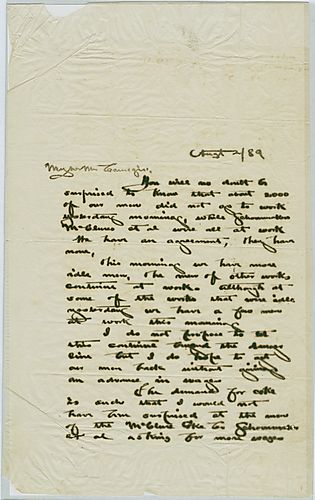 Augt 2/89
My dear Mr Carnegie.
You will no doubt be
surprised to know that about 2000
of our men did not go to work
yesterday morning, while Schoonmaker
McClure et al were all at work
We have an agreement, they have
none,
This morning we have more
idle men, the men of other works
continue at work although at
some of the works that were idle
yesterday we have a few men
at work this morning
I do not propose to let
this continue beyond the danger
line but I do hope to get
our men back without giving
an advance in wages
The demand for coke
is such that I would not
have been surprised at the men
of the McClure Coke Co Schoonmaker
et al asking for more wages